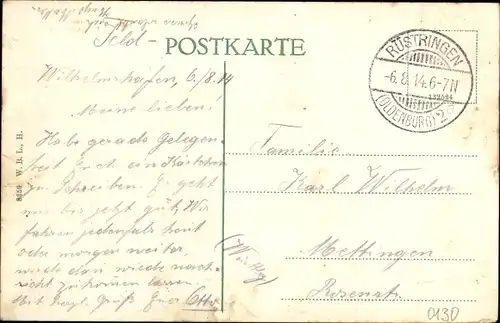 Feld-
POSTKARTE
Wilhelmshafen, 6/8.14
Meine lieben!
Habe gerade Gelegen-
heit Euch ein Kärtchen
zu schreiben. Es geht
mir bis jetzt gut, Wir
fahren jedenfalls heut
oder morgen weiter,
werde dan wieder nach-
richt zukommen lassen.
Mit herzl. Gruß Euer Otto
8859 W. B. L., B.
RÜSTRINGEN
-6.8.14.6-7N
(OLDENBURG)*2
Familie
Karl Wilhelm
Mettingen
Rosenstr.
0130